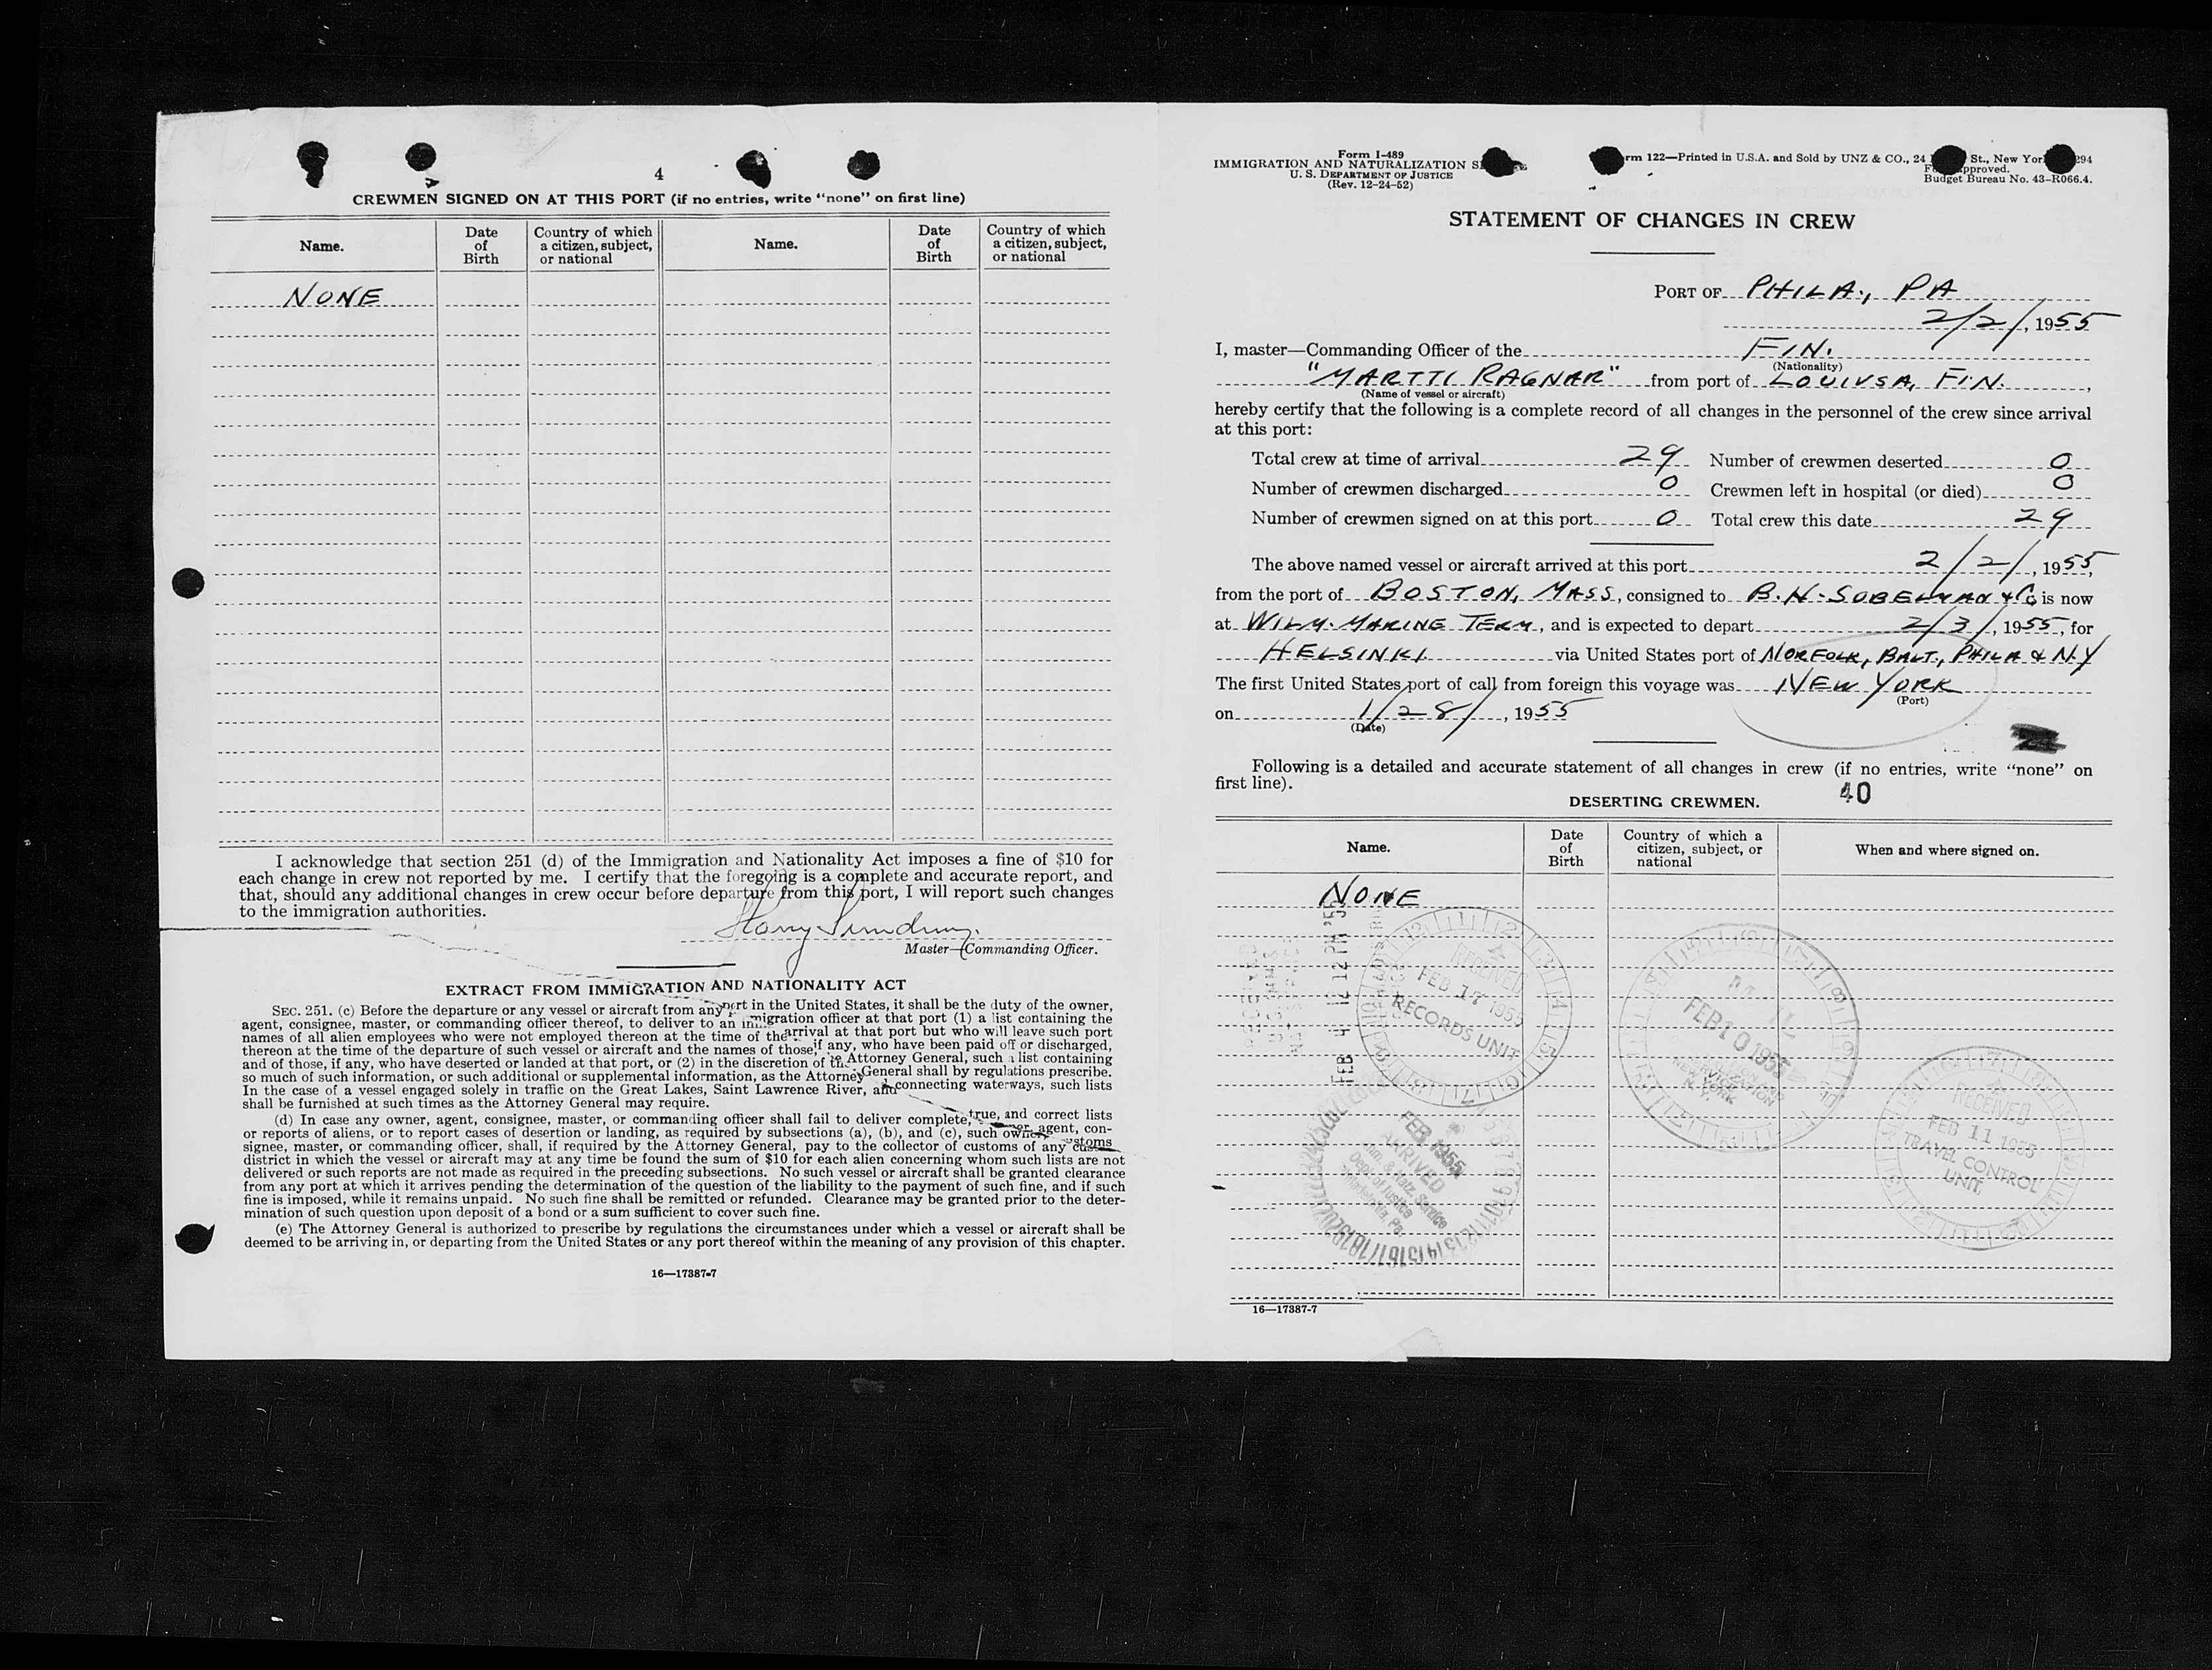 4
CREWMEN SIGNED ON AT THIS PORT (if no entries, write "none" on first line)
Name. Date of Birth Country of which a citizen, subject, or national Name. Date of Birth Country of which a citizen, subject, or national
NONE
I acknowledge that section 251 (d) of the Immigration and Nationality Act imposes a fine of $10 for
each change in crew not reported by me. I certify that the foregoing is a complete and accurate report, and
that, should any additional changes in crew occur before departure from this port, I will report such changes
to the immigration authorities.
Master—Commanding Officer.
EXTRACT FROM IMMIGRATION AND NATIONALITY ACT
SEC. 251. (c) Before the departure or any vessel or aircraft from any port in the United States, it shall be the duty of the owner,
agent, consignee, master, or commanding officer thereof, to deliver to an immigration officer at that port (1) a list containing the
names of all alien employees who were not employed thereon at the time of the arrival at that port but who will leave such port
thereon at the time of the departure of such vessel or aircraft and the names of those, if any, who have been paid off or discharged,
and of those, if any, who have deserted or landed at that port, or (2) in the discretion of the Attorney General, such a list containing
so much of such information, or such additional or supplemental information, as the Attorney General shall by regulations prescribe.
In the case of a vessel engaged solely in traffic on the Great Lakes, Saint Lawrence River, and connecting waterways, such lists
shall be furnished at such times as the Attorney General may require.
(d) In case any owner, agent, consignee, master, or commanding officer shall fail to deliver complete, true, and correct lists
or reports of aliens, or to report cases of desertion or landing, as required by subsections (a), (b), and (c), such owner, agent, con-
signee, master, or commanding officer, shall, if required by the Attorney General, pay to the collector of customs of any customs
district in which the vessel or aircraft may at any time be found the sum of $10 for each alien concerning whom such lists are not
delivered or such reports are not made as required in the preceding subsections. No such vessel or aircraft shall be granted clearance
from any port at which it arrives pending the determination of the question of the liability to the payment of such fine, and if such
fine is imposed, while it remains unpaid. No such fine shall be remitted or refunded. Clearance may be granted prior to the deter-
mination of such question upon deposit of a bond or a sum sufficient to cover such fine.
(e) The Attorney General is authorized to prescribe by regulations the circumstances under which a vessel or aircraft shall be
deemed to be arriving in, or departing from the United States or any port thereof within the meaning of any provision of this chapter.
16—17387-7
Form I-489
IMMIGRATION AND NATURALIZATION
U. S. DEPARTMENT OF JUSTICE
(Rev. 12-24-52)
122—Printed in U.S.A. and Sold by UNZ & CO., 24 St., New 294
Budget Bureau No. 43-R066.4.
STATEMENT OF CHANGES IN CREW
PORT OF PHILA., PA
2/2/, 1955
I, master—Commanding Officer of the FIN.
(Nationality)
"MARTTI RAGNAR" from port of LOUIVSA, FIN.,
(Name of vessel or aircraft)
hereby certify that the following is a complete record of all changes in the personnel of the crew since arrival
at this port:
Total crew at time of arrival 29 Number of crewmen deserted 0
Number of crewmen discharged 0 Crewmen left in hospital (or died) 0
Number of crewmen signed on at this port 0 Total crew this date 29
The above named vessel or aircraft arrived at this port 2/2/, 1955,
from the port of BOSTON, MASS, consigned to B.H. SOBELMAN & Co is now
at WILM. MARINE TERM, and is expected to depart 2/3/, 1955, for
HELSINKI via United States port of NORFOLK, BALT., PHILA & N.Y
The first United States port of call from foreign this voyage was NEW YORK
(Port)
on 1/28/, 1955
(Date)
Following is a detailed and accurate statement of all changes in crew (if no entries, write "none" on
first line).
40
DESERTING CREWMEN.
Name. Date of Birth Country of which a citizen, subject, or national When and where signed on.
NONE
FEB 4 12 12 PM '55
RECEIVED
FEB 17 1955
RECORDS UNIT
FEB 10 1955
NEW YORK
RECEIVED
FEB 11 1955
TRAVEL CONTROL
UNIT
FEB 1955
ARRIVED
Imm. & Natz. Service
Dept. of Justice
16—17387-7